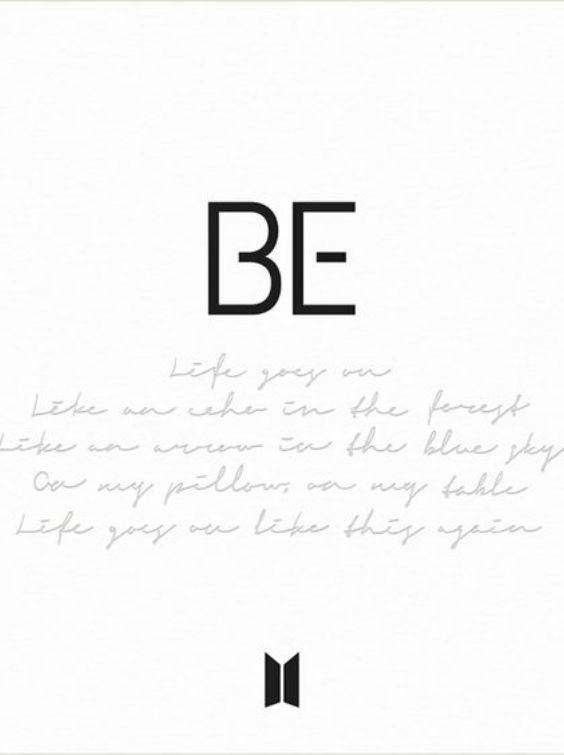 BE
Life goes on
Like an echo in the forest
Like an arrow in the blue sky
On my pillow, on my table
Life goes on like this again